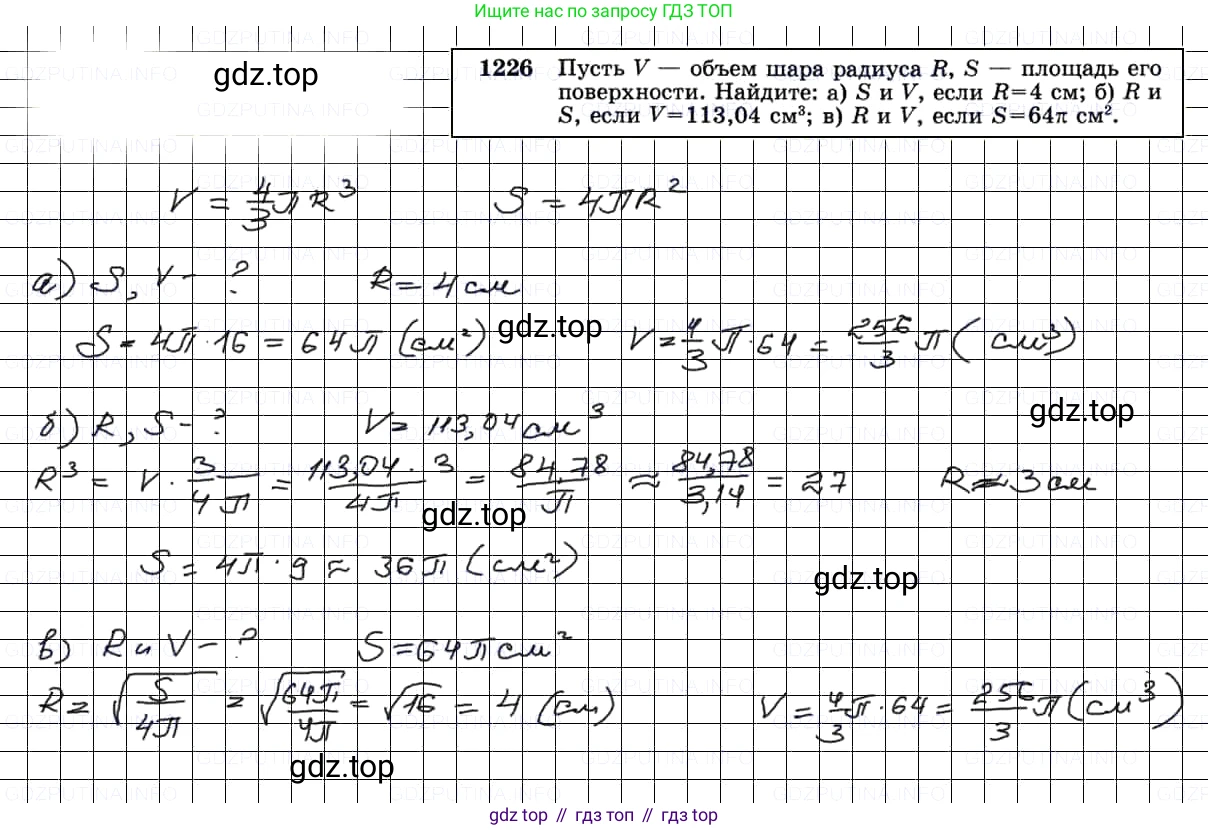 Ищите нас по запросу ГДЗ ТОП
gdz.top
1226 Пусть V — объем шара радиуса R, S — площадь его
поверхности. Найдите: а) S и V, если R=4 см; б) R и
S, если V=113,04 см³; в) R и V, если S=64π см².
V = 4/3 πR³ S = 4πR²
а) S, V - ? R = 4 см
S = 4π·16 = 64π (см²) gdz.top V = 4/3 π·64 = 256/3 π (см³)
б) R, S - ? V = 113,04 см³ gdz.top
R³ = V · 3/4π = 113,04 · 3/4π = 84,78/π ≈ 84,78/3,14 = 27 R = 3 см
gdz.top
S = 4π·9 ≈ 36π (см²) gdz.top
в) R и V - ? S = 64π см²
R = √S/4π = √64π/4π = √16 = 4 (см) V = 4/3 π·64 = 256/3 π (см³)
gdz.top
gdz top // гдз топ // gdz top
GDZPUTINA.INFO